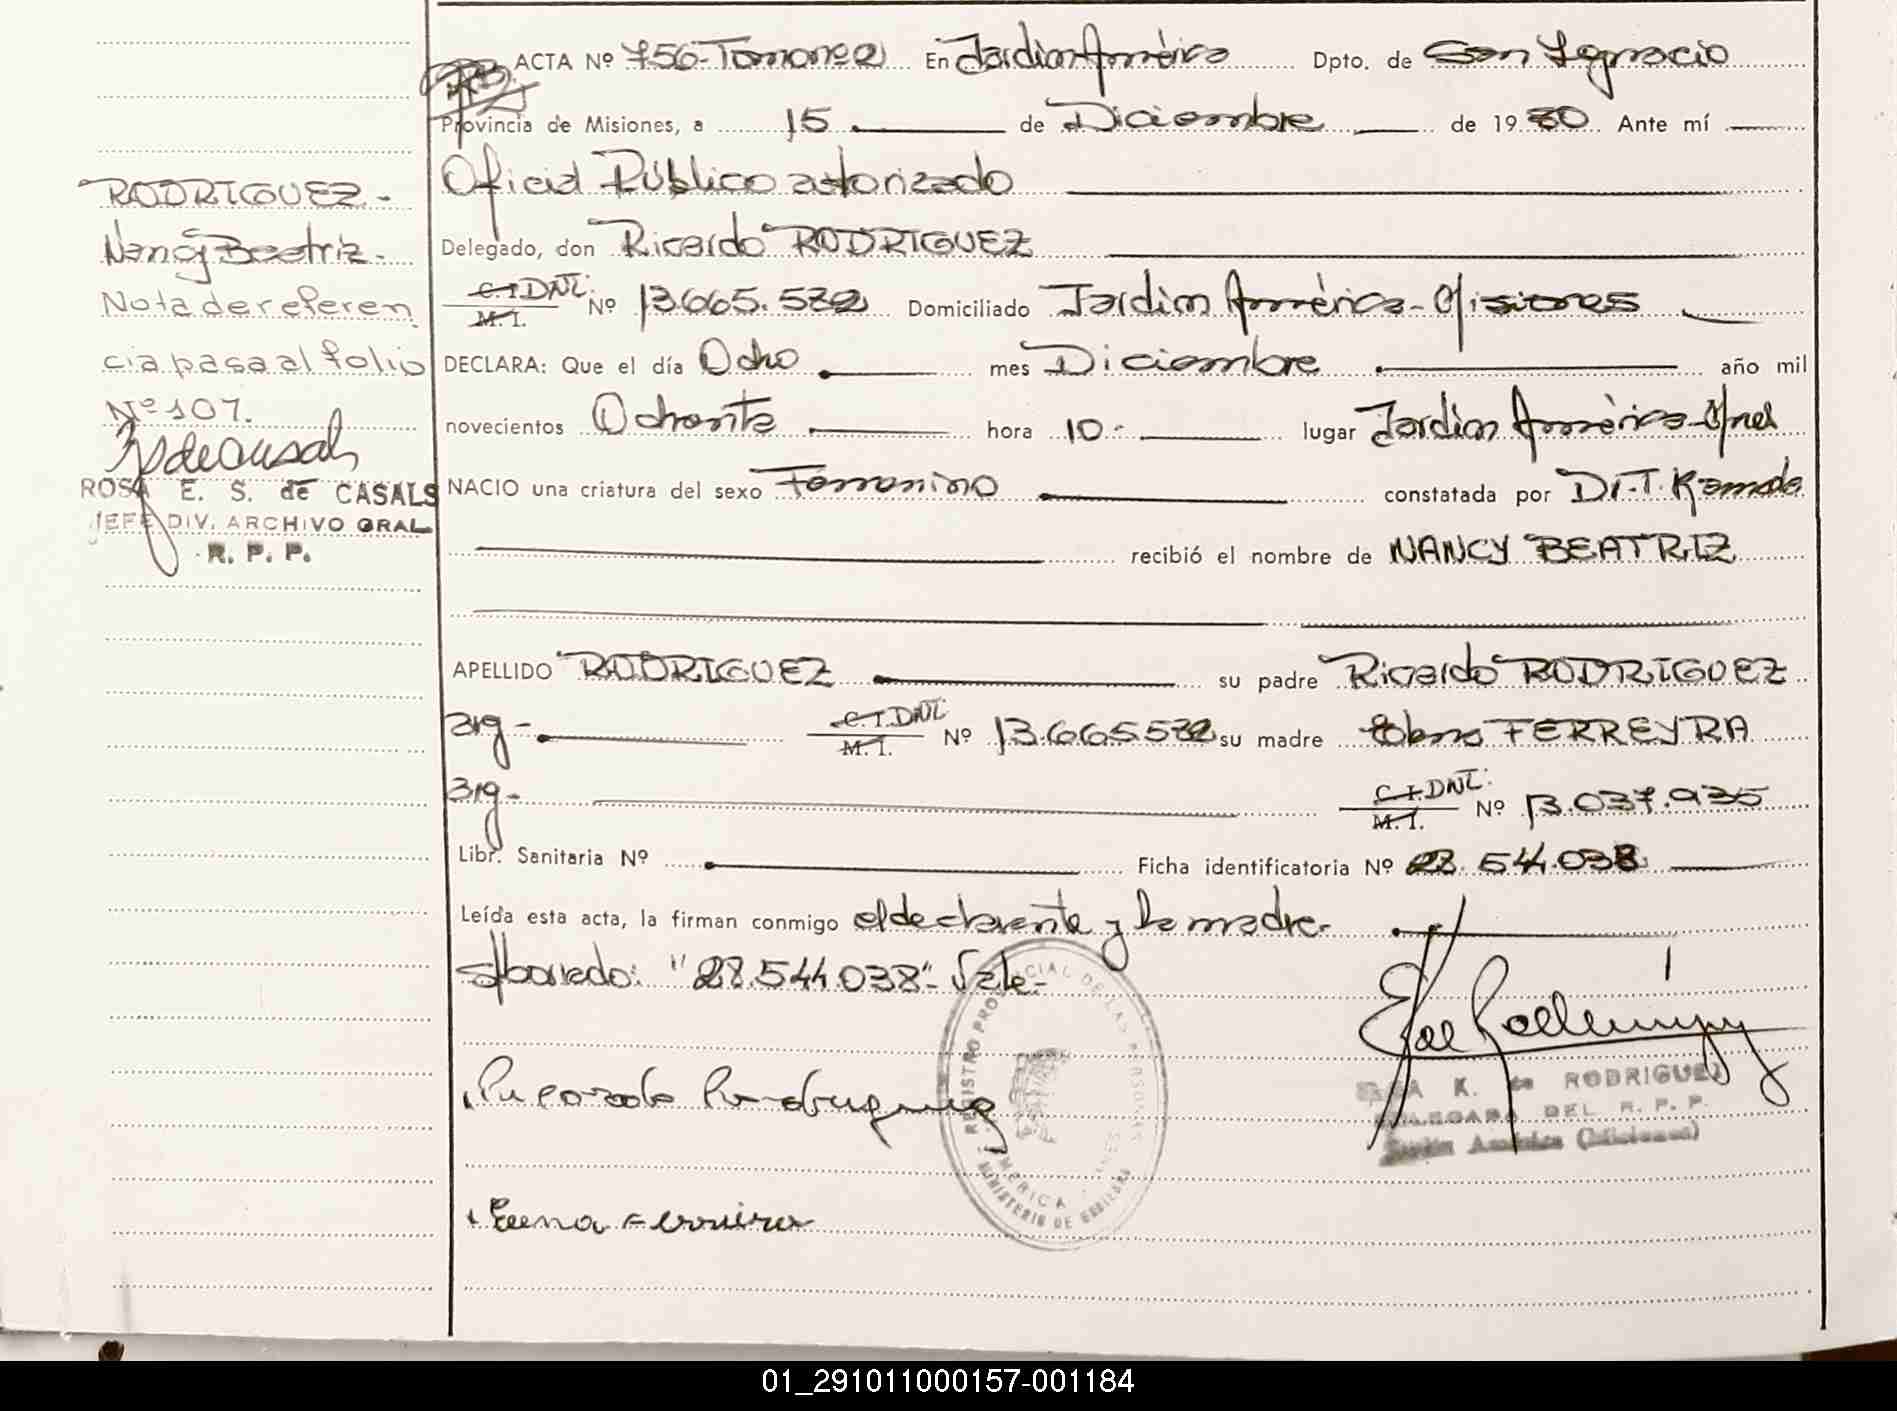 RODRIGUEZ-
Nancy Beatriz-
Nota de referen
cia pasa al folio
Nº 107.
ROSA E. S. de CASALS
JEFE DIV. ARCHIVO GRAL
R. P. P.
ACTA Nº 756- En Jardin América Dpto. de San Ignacio
Provincia de Misiones, a 15 de Diciembre de 1980 Ante mí
Oficial Público autorizado
Delegado, don Ricardo RODRIGUEZ
C.I. DNI. M.I. Nº 13.665.532 Domiciliado Jardin América- Misiones
DECLARA: Que el día Ocho mes Diciembre año mil
novecientos Ochenta hora 10- lugar Jardin América-Mnes
NACIO una criatura del sexo Femenino constatada por Dr. T.
recibió el nombre de NANCY BEATRIZ
APELLIDO RODRIGUEZ su padre Ricardo RODRIGUEZ
arg- C.I. DNI. M.I. Nº 13.665.532 su madre FERREYRA
arg- C.I. DNI. M.I. Nº 13.037.935
Libr. Sanitaria Nº Ficha identificatoria Nº 28.544.038
Leída esta acta, la firman conmigo el declarante y la madre-
"28.544.038"- Vale-
REGISTRO PROVINCIAL DE LAS PERSONAS
AMERICA
MINISTERIO DE
K. de RODRIGUEZ
DELEGADA DEL R. P. P.
Jardin América (Misiones)
01_291011000157-001184